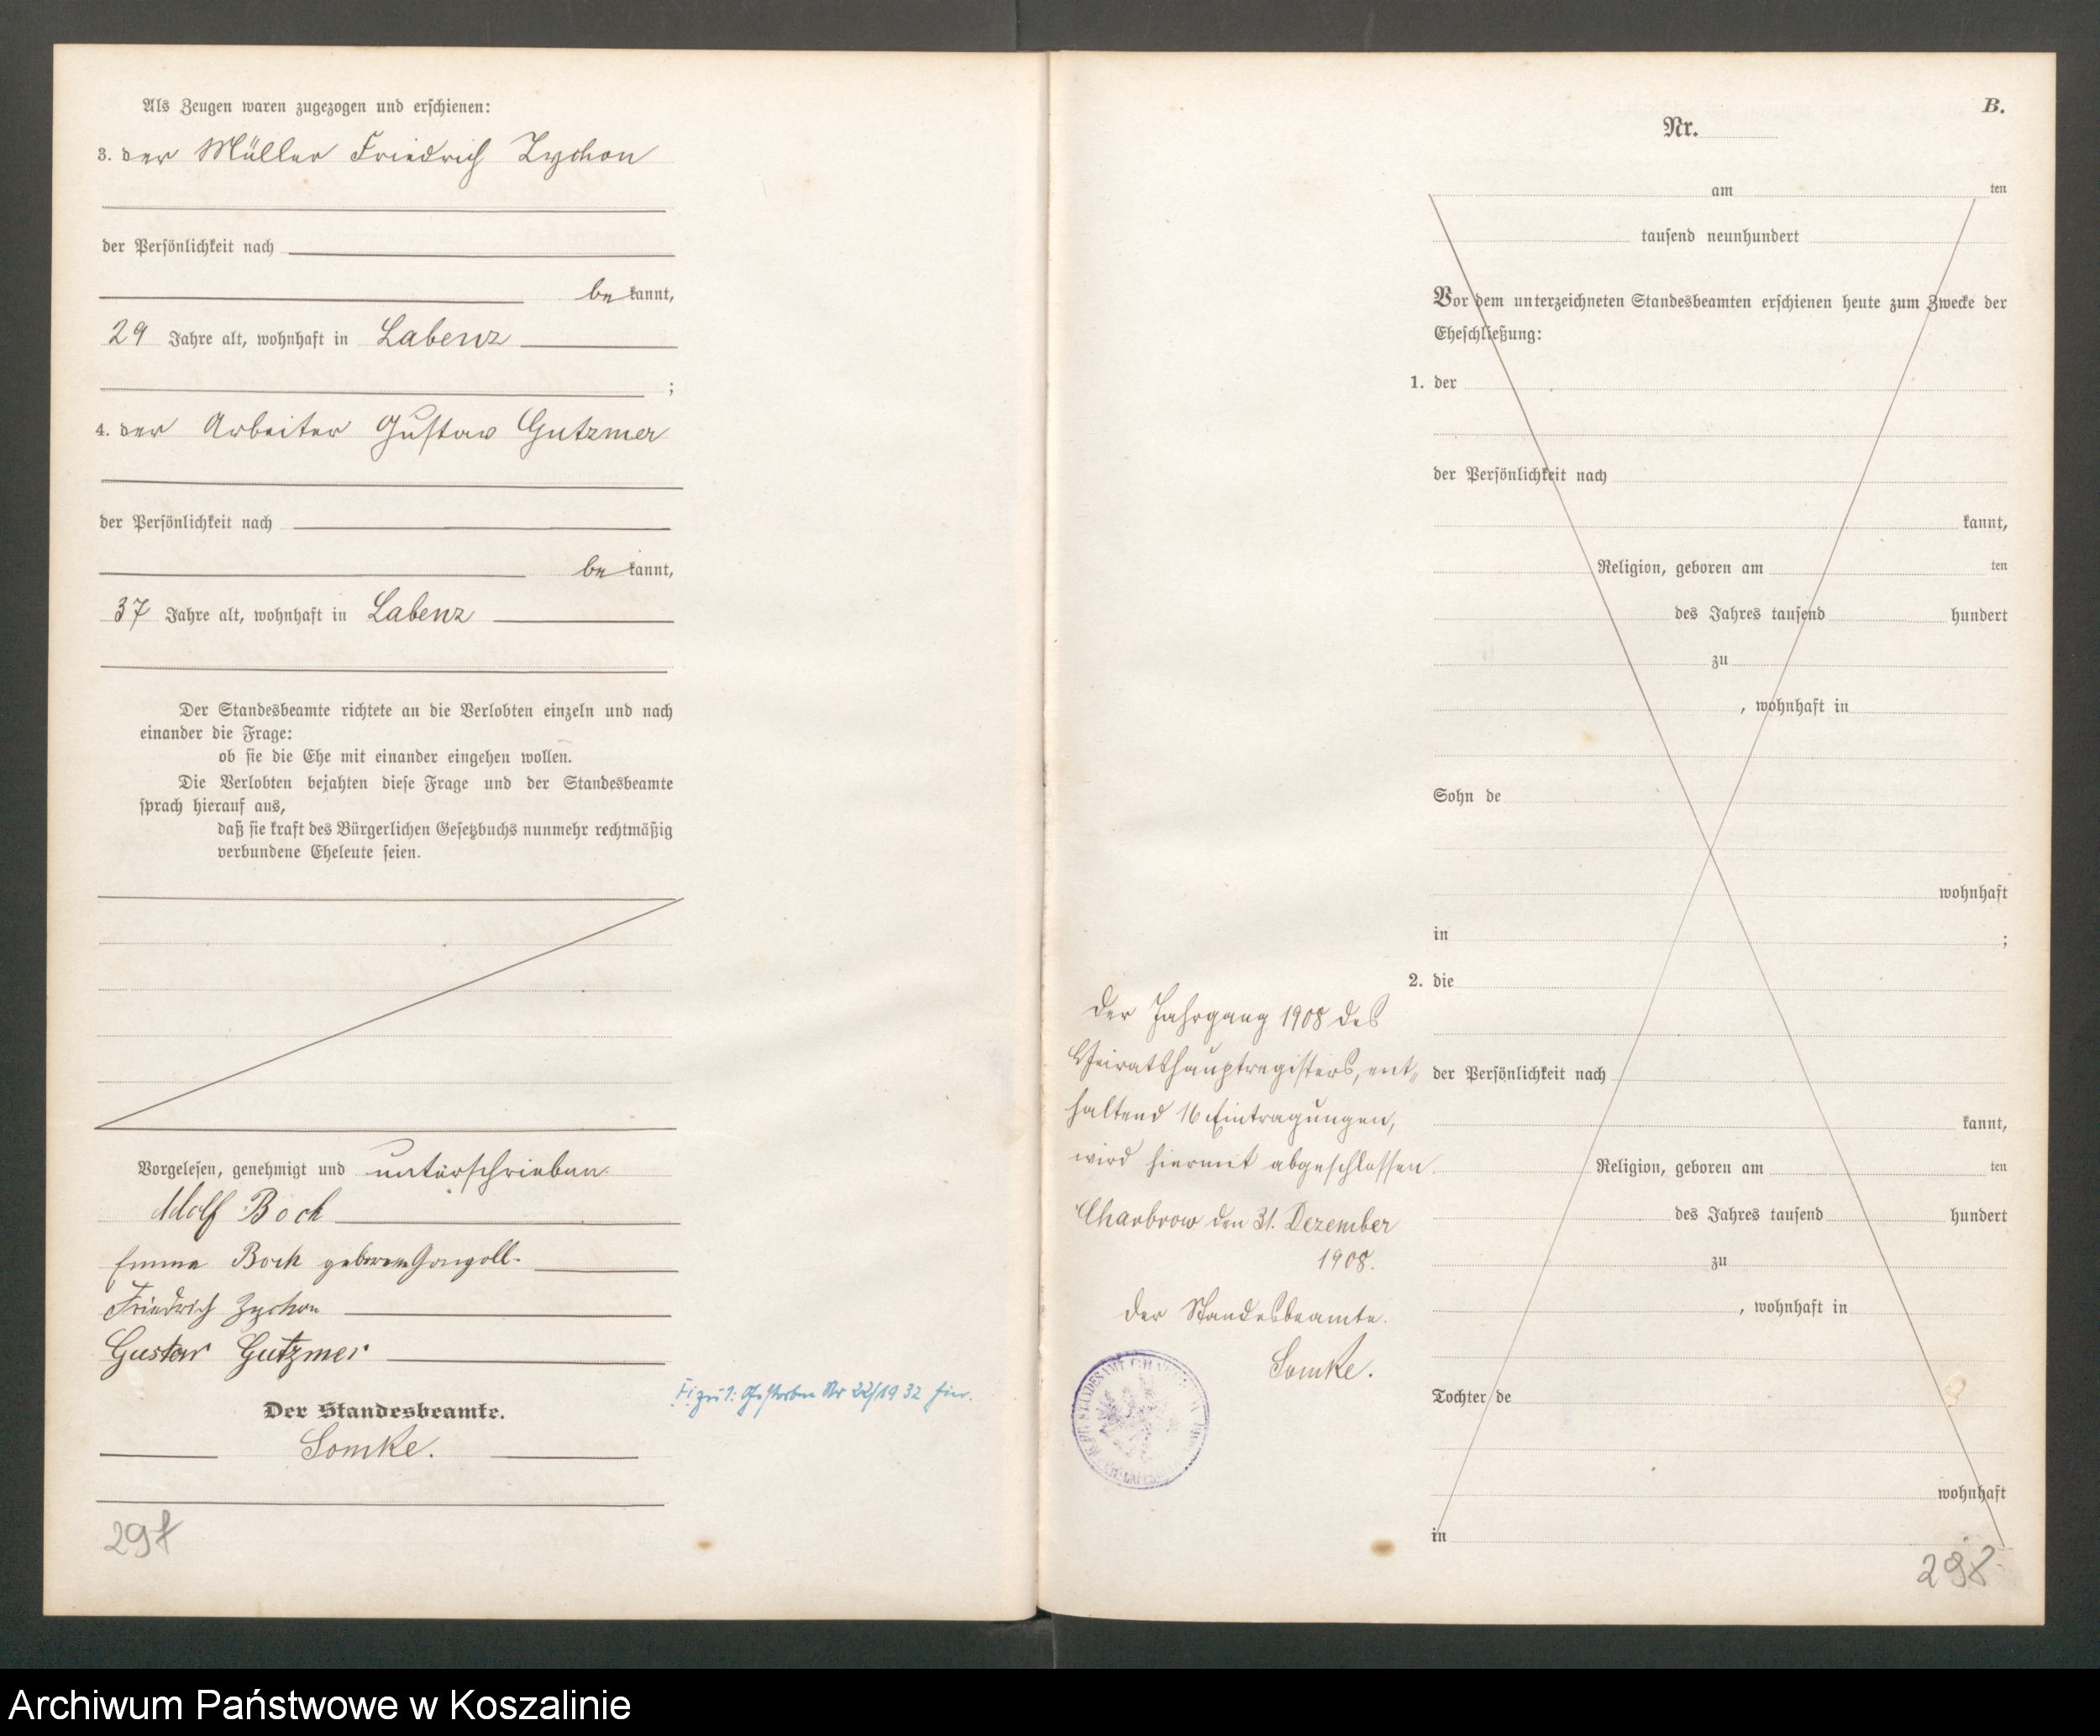 Als Zeugen waren zugezogen und erschienen:
3. der Müller Friedrich Zychon
der Persönlichkeit nach
be kannt,
29 Jahre alt, wohnhaft in Labenz
;
4. der Arbeiter Gustav Gutzmer
der Persönlichkeit nach
be kannt,
37 Jahre alt, wohnhaft in Labenz
Der Standesbeamte richtete an die Verlobten einzeln und nach
einander die Frage:
ob sie die Ehe mit einander eingehen wollen.
Die Verlobten bejahten diese Frage und der Standesbeamte
sprach hierauf aus,
daß sie kraft des Bürgerlichen Gesetzbuchs nunmehr rechtmäßig
verbundene Eheleute seien.
Vorgelesen, genehmigt und unterschrieben
Adolf Bock
Emma Bock geborene Gongoll.
Friedrich Zychon
Gustav Gutzmer
Der Standesbeamte.
Lomke.
Gestorben Nr 22/1932 hier.
297
B.
Nr.
am ten
tausend neunhundert
Vor dem unterzeichneten Standesbeamten erschienen heute zum Zwecke der
Eheschließung:
1. der
der Persönlichkeit nach
kannt,
Religion, geboren am ten
des Jahres tausend hundert
zu
, wohnhaft in
Sohn de
wohnhaft
in ;
2. die
der Persönlichkeit nach
kannt,
Religion, geboren am ten
des Jahres tausend hundert
zu
, wohnhaft in
Tochter de
wohnhaft
in
Der Jahrgang 1908 des
Heiratshauptregisters, ent-
haltend 16 Eintragungen,
wird hiermit abgeschlossen.
Charbrow den 31. Dezember
1908.
Der Standesbeamte.
Lomke.
298
Archiwum Państwowe w Koszalinie